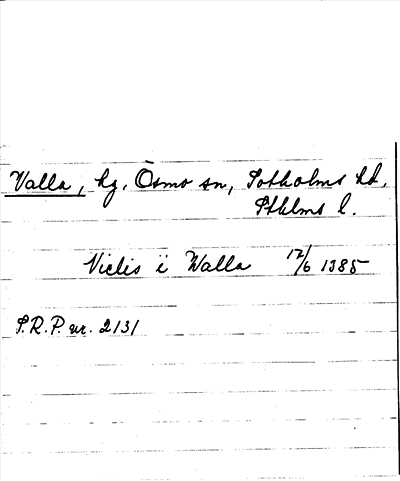 Valla, hg, Ösmo sn, Sotholms hd,
Sthlms l.
Niclis i Walla 12/6 1385
S.R.P. nr. 2131